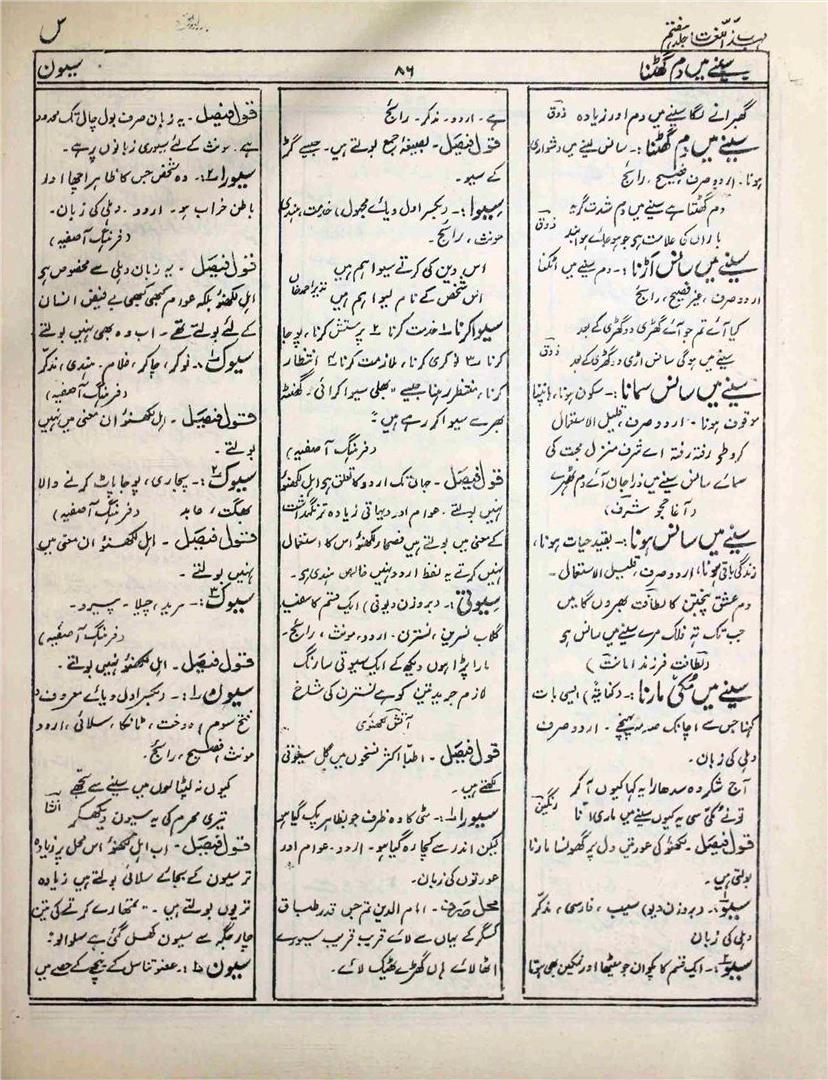 مہذب اللغت: جلد ہفتم
س
سینے میں دم گھٹنا
۸۶
سیون
گھبرانے لگا سینے میں دم اور زیادہ ذوق
سینے میں دم گھٹنا:۔ سانس لینے میں دشواری
ہونا۔ اردو صرف فصیح، رائج
دم گھٹتا ہے سینے میں دم شدت گریہ
باراں کی علامت ہے جو ہو جائے ہوا بند ذوق
سینے میں سانس اڑنا:۔ دم سینے میں اٹکنا
اردو صرف، غیر فصیح، رائج
کیا آئے تم جو آئے گھڑی دو گھڑی کے بعد
سینے میں ہوگی سانس اڑی دو گھڑی کے بعد ذوق
سینے میں سانس سمانا:۔ سکون ہونا، ہانپنا
موقوف ہونا۔ اردو صرف، قلیل الاستعمال
کرو طے رفتہ رفتہ اے شرف منزل محبت کی
سمائے سانس سینے میں ذرا جان آئے دم ٹھہرے
(آغا حجو شرف)
سینے میں سانس ہونا:۔ بقید حیات ہونا،
زندگی باقی ہونا، اردو صرف قلیل الاستعمال۔
دم عشق پنجتن کا لطافت بھروں گا میں
جب تک تہ فلک مرے سینے میں سانس ہے
(لطافت فرزند امانت)
سینے میں مکی مارنا:۔ (کنایۃ) ایسی بات
کہنا جس سے اچانک صدمہ پہنچے۔ اردو صرف
دہلی کی زبان۔
آج شکر دہ سدھارا یہ کہا کیوں آ کر
تونے مکی سی یہ کیوں سینے میں ماری انا رنگین
قول فیصل۔ لکھنؤ کی عورتیں دل پر گھونسا مارنا
بولتی ہیں۔
سیو۱:۔ (بروزن دیو) سیب، فارسی، مذکر
دہلی کی زبان
سیو۲:۔ ایک قسم کا پکوان جو میٹھا اور نمکین بھی ہوتا
ہے۔ اردو۔ مذکر۔ رائج
قول فیصل۔ بصیغۂ جمع بولتے ہیں۔ جیسے گڑ
کے سیو۔
سیوا:۔ (بکسر اول و یائے مجہول) خدمت، ہندی
مونث، رائج۔
اس دین کی کرتے سیوا ہم ہیں
اس شخص کے نام لیوا ہم ہیں نذیر احمد خاں
سیوا کرنا:۔ ۱ خدمت کرنا ۲ پرستش کرنا، پوجا
کرنا ۳ نوکری کرنا، ملازمت کرنا ۴ انتظار
کرنا، منتظر رہنا جیسے "بھلی سیوا کرائی۔ گھنٹہ
بھر سے سیوا کر رہے ہیں"
(فرہنگ آصفیہ)
قول فیصل۔ جہاں تک اردو کا تعلق ہے اہل لکھنؤ
نہیں بولتے۔ عوام اور دیہاتی زیادہ تر نگہداشت
کے معنی میں بولتے ہیں فصحاء لکھنؤ اس کا استعمال
نہیں کرتے یہ لفظ اردو نہیں خالص ہندی ہے۔
سیوتی:۔ (بروزن دیوتی) ایک قسم کا سفید
گلاب نسرین، نسترن۔ اردو، مونث، رائج۔
مارا پڑا ہوں دیکھ کے ایک سیوتی سا رنگ
لازم جریدتین کو ہے نسترن کی شاخ
آتش لکھنوی
قول فیصل۔ اطبا اکثر نسخوں میں گل سیوتی
لکھتے ہیں۔
سیورا۱:۔ مٹی کا وہ ظرف جو بظاہر پک گیا ہو
لیکن اندر سے کچا رہ گیا ہو۔ اردو۔ عوام اور
عورتوں کی زبان۔
محل صرف۔ امام الدین تم جس قدر طباق
کسگر کے یہاں سے لائے قریب قریب سیورے
اٹھا لائے ہاں گھڑے ٹھیک لائے۔
قول فیصل۔ یہ زبان صرف بول چال تک محدود
ہے۔ مونث کے لئے سیوری زبانوں پر ہے۔
سیورا۲:۔ وہ شخص جس کا ظاہر اچھا اور
باطن خراب ہو۔ اردو۔ دہلی کی زبان۔
(فرہنگ آصفیہ)
قول فیصل۔ یہ زبان دہلی سے مخصوص ہے
اہل لکھنؤ بلکہ عوام کبھی کبھی بے فیض انسان
کے لئے بولتے تھے۔ اب وہ بھی نہیں بولتے
سیوک۱:۔ نوکر، چاکر، غلام۔ ہندی، مذکر
(فرہنگ آصفیہ)
قول فیصل۔ اہل لکھنؤ ان معنی میں نہیں
بولتے۔
سیوک۲:۔ پجاری، پوجا پاٹ کرنے والا
بھگت، عابد (فرہنگ آصفیہ)
قول فیصل۔ اہل لکھنؤ ان معنی میں
نہیں بولتے۔
سیوک۳:۔ مرید، چیلا۔ پیرو۔
(فرہنگ آصفیہ)
قول فیصل۔ اہل لکھنؤ نہیں بولتے۔
سیون۱:۔ (بکسر اول و یائے معروف و
فتح سوم) دوخت، ٹانکا، سلائی، اردو
مونث فصیح، رائج۔
کیوں نہ لپٹا لوں میں سینے سے تجھے
تیری محرم کی یہ سیون دیکھ کر انشا
قول فیصل۔ اب اہل لکھنؤ اس محل پر زیادہ
تر سیون کے بجائے سلائی بولتے ہیں زیادہ
تر یوں بولتے ہیں۔ "تمھارے کرتے کی تین
چار جگہ سے سیون کھل گئی ہے سلوا لو:
سیون۲:۔ عضو تناسل کے نیچے کے حصے میں